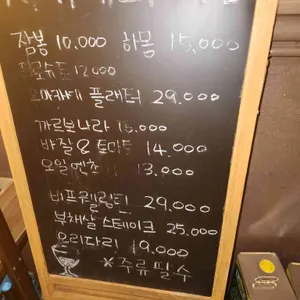 잠봉 10.000 하몽 15,000
프로슈토 12.000
오마카세 플래터 29.000
까르보나라 15.000
바질&토마토 14.000
오일엔초비 13.000
비프웰링턴 29000
부채살 스테이크 25.000
오리다리 19.000
*주류필수